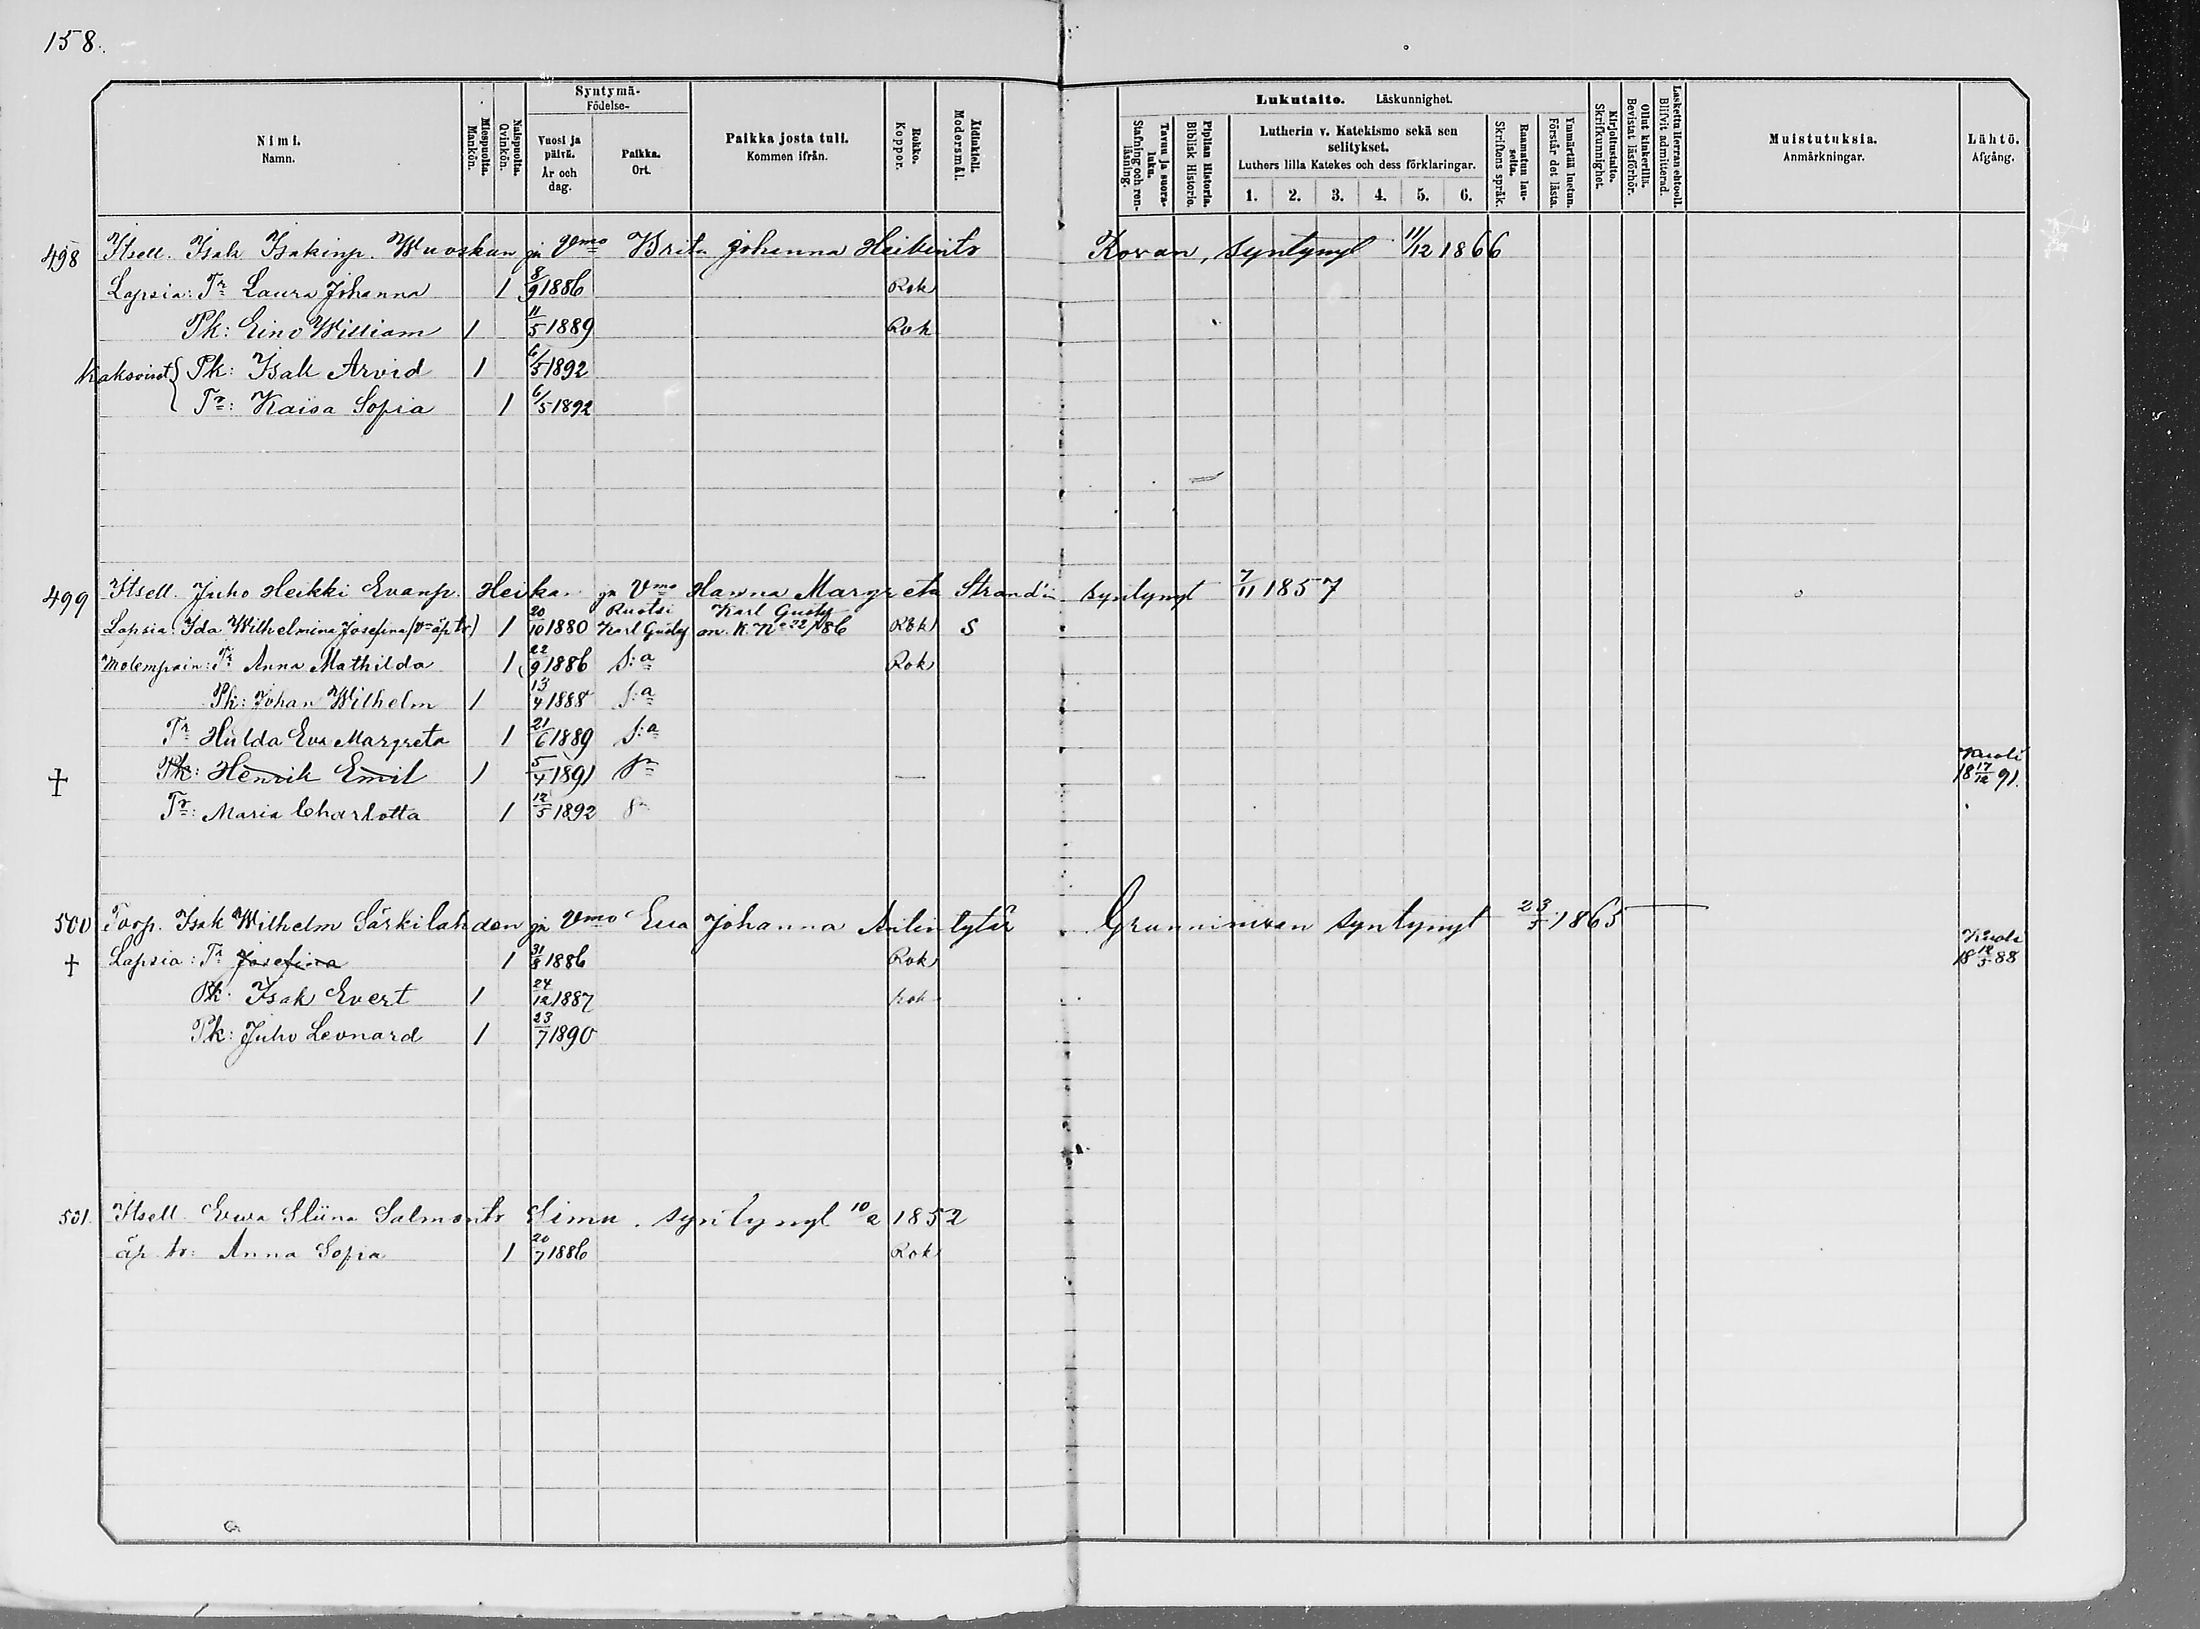 158.
Nimi.
Namn.
Miespuolta.
Mankön.
Naispuolta.
Qvinkön.
Syntymä-
Födelse-
Vuosi ja päivä.
År och dag.
Paikka.
Ort.
Paikka josta tuli.
Kommen ifrån.
Rokko.
Koppor.
Äidinkieli.
Modersmål.
Lukutaito. Läskunnighet.
Tavuu ja suora-luku.
Stafning och ren-läsning.
Piplian Historia.
Biblisk Historie.
Lutherin v. Katekismo sekä sen selitykset.
Luthers lilla Katekes och dess förklaringar.
1. 2. 3. 4. 5. 6.
Raamatun lau-selta.
Skriftens språk.
Ymmärtää luetun.
Förstår det lästa.
Kirjoitustaito.
Skrifkunnighet.
Ollut kinkerillä.
Bevistat läsförhör.
Laskettu Herran ehtooll.
Blifvit admitterad.
Muistutuksia.
Anmärkningar.
Lähtö.
Afgång.
498 Itsell. Isak Isakinp. Wuoskun ja Vmo Brita Johanna Heikintr Kovan, syntynyt 11/12 1866
Lapsia: Tr Laura Johanna 1 8/9 1886 Rok
Pk: Eino William 1 11/5 1889 Rok
Kaksoiset { Pk: Isak Arvid 1 6/5 1892
Tr: Kaisa Sofia 1 6/5 1892
499 Itsell. Juho Heikki Evanp. Heikan ja Vmo Hanna Margreta Strand'in syntynyt 7/11 1857
Lapsia: Ida Wilhelmina Josefina (Vn äp tr) 1 20/10 1880 Ruotsi Karl Gustaf Karl Gustaf on. K. No 22/86 Rok S
Molempain: Tr Anna Mathilda 1 22/9 1886 S:a Rok
Pk: Johan Wilhelm 1 13/4 1888 S:a
Tr Hulda Eva Margreta 1 21/6 1889 S:a
† Pk: Henrik Emil 1 5/4 1891 — Kuoli 18 17/12 91.
Tr: Maria Charlotta 1 12/5 1892
500 Torp. Isak Wilhelm Särkilahden ja Vmo Eva Johanna Antintytär Grunnin syntynyt 23/5 1865
† Lapsia: Tr Josefina 1 31/8 1886 Rok Kuoli 18 12/5 88
Pk: Isak Evert 1 24/12 1887 Rok
Pk: Juho Leonard 1 23/7 1890
501. Itsell. Ewa Stiina Salmontr Simu. syntynyt 10/2 1852
äp. tr: Anna Sofia 1 20/7 1886 Rok